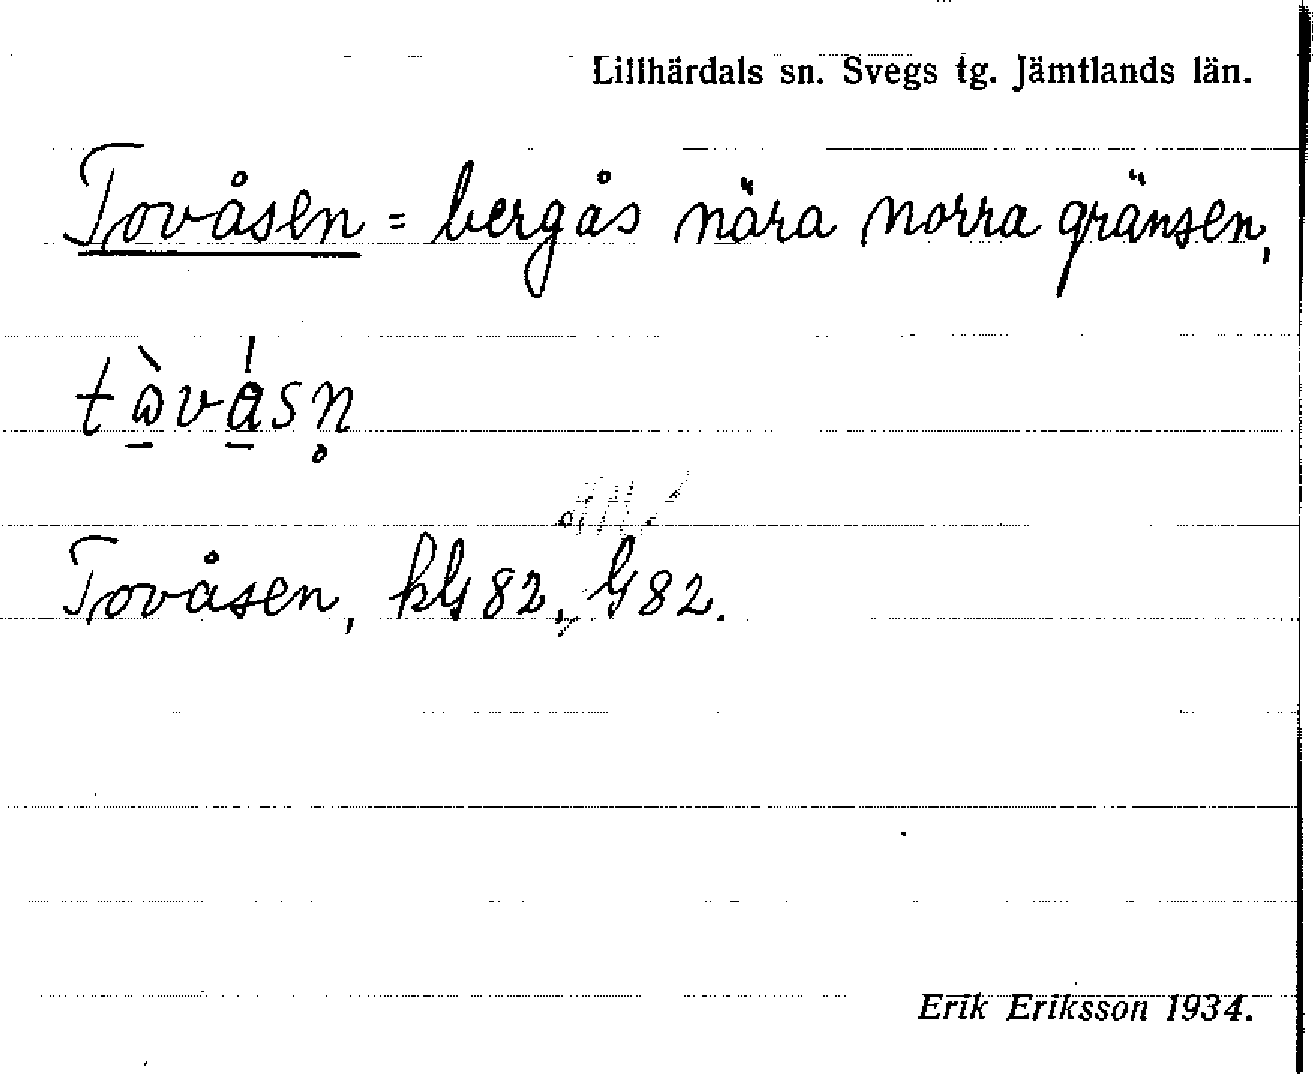 Lillhärdals sn. Svegs tg. Jämtlands län.
Tovåsen = bergås nära norra gränsen,
Tovåsen, kbl 82, bl 82.
Erik Eriksson 1934.